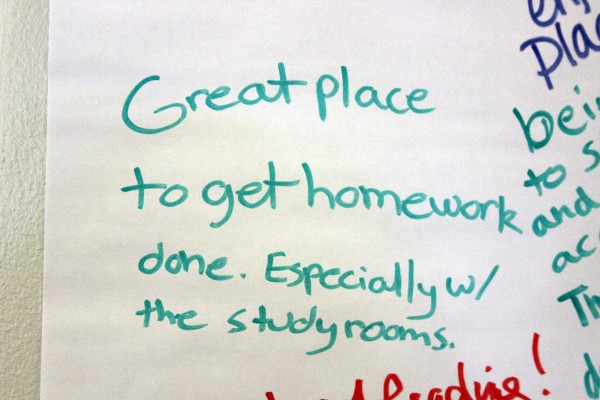 Great place
to get homework
done. Especially w/
the study rooms.
being
to s
and
acc
Reading!